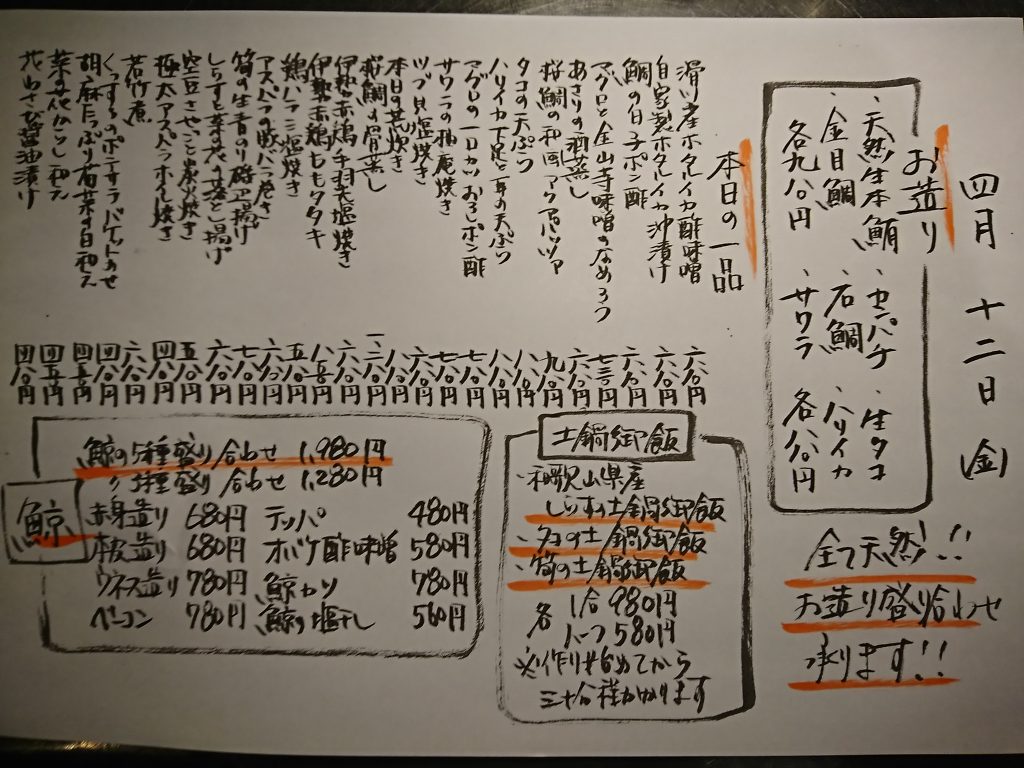 四月 十二日 (金)
お造り
・天然生本鮪 ・カンパチ ・生タコ
・金目鯛 ・石鯛 ・ハリイカ
各九八〇円 ・サワラ 各八八〇円
全て天然!!
お造り盛り合わせ
承ります!!
本日の一品
滑川産ホタルイカ酢味噌 六八〇円
自家製ホタルイカ沖漬け 六八〇円
鯛の白子ポン酢 六八〇円
マグロと金山寺味噌のなめろう 七三〇円
あさりの酒蒸し 六八〇円
桜鯛の和風アクアパッツァ 九八〇円
タコの天ぷら 八八〇円
ハリイカ下足と の天ぷら 八八〇円
マグロの一口カツおろしポン酢 七八〇円
サワラの柚庵焼き 七八〇円
ツブ貝塩焼き 六八〇円
本日の兜焼き 八八〇円
桜鯛の骨蒸し 一、二八〇円
伊勢赤鶏手羽先塩焼き 六八〇円
伊勢赤鶏ももタタキ 八八〇円
鶏ハラミ塩焼き 五八〇円
アスパラの豚バラ巻き 六八〇円
筍の生青のり磯辺揚げ 七八〇円
しらすと菜の花のかき揚げ 六八〇円
空豆さやごと炭火焼き 五八〇円
極太アスパラホイル焼き 四八〇円
若竹煮 六八〇円
ポテサラバゲットのせ 四八〇円
胡麻たっぷり 菜の白和え 四五〇円
菜の花からし和え 四五〇円
花わさび醤油漬け 四八〇円
土鍋御飯
・和歌山県産
しらすの土鍋御飯
・タコの土鍋御飯
・筍の土鍋御飯
各 1合 980円
ハーフ 580円
※作り始めてから
三十分程かかります
鯨
鯨の5種盛り合わせ 1,980円
〃 3種盛り合わせ 1,280円
赤身造り 680円 テッパ 480円
本皮造り 680円 オバケ酢味噌 580円
ウネス造り 780円 鯨カツ 780円
ベーコン 780円 鯨の塩干し 560円